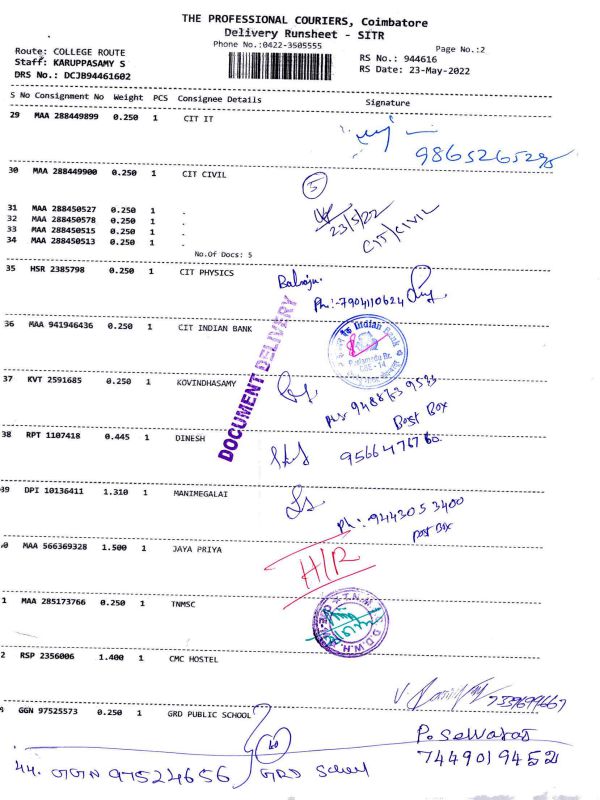 THE PROFESSIONAL COURIERS, Coimbatore
Delivery Runsheet - SITR
Phone No.:0422-3505555
Page No.:2
Route: COLLEGE ROUTE
Staff: KARUPPASAMY S
DRS No.: DCJB94461602
RS No.: 944616
RS Date: 23-May-2022
S No Consignment No Weight PCS Consignee Details Signature
29 MAA 288449899 0.250 1 CIT IT
9865265295
30 MAA 288449900 0.250 1 CIT CIVIL
5
31 MAA 288450527 0.250 1 -
32 MAA 288450578 0.250 1 -
33 MAA 288450515 0.250 1 -
34 MAA 288450513 0.250 1 -
23/5/22
CIT/CIVIL
No.Of Docs: 5
35 HSR 2385798 0.250 1 CIT PHYSICS
Balraju.
Ph:-7904110624
DOCUMENT DELIVERY
36 MAA 941946436 0.250 1 CIT INDIAN BANK
Indian Bank
CBE - 14
37 KVT 2591685 0.250 1 KOVINDHASAMY
Post Box
38 RPT 1107418 0.445 1 DINESH
39 DPI 10136411 1.310 1 MANIMEGALAI
Ph:-9443053400
Post Box
0 MAA 566369328 1.500 1 JAYA PRIYA
H/R
1 MAA 285173766 0.250 1 TNMSC
2 RSP 2356006 1.400 1 CMC HOSTEL
GGN 97525573 0.250 1 GRD PUBLIC SCHOOL
7449019452
44. GGN 97524656 GRD School